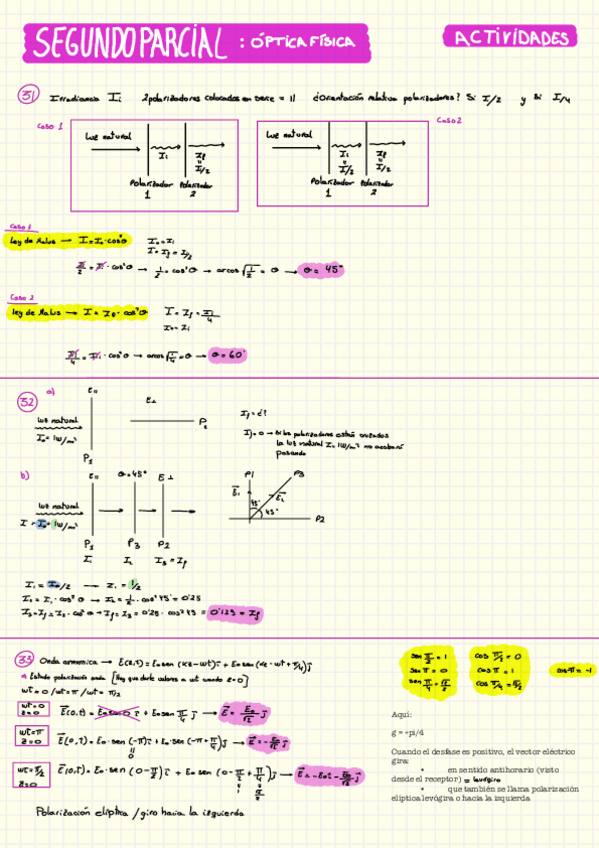 SEGUNDO PARCIAL : ÓPTICA FÍSICA
ACTIVIDADES
31 Irradiancia Ii 2 polarizadores colocados en serie = 11 ¿Orientación relativa polarizadores? Si I/2 y si I/4
Caso 1
Luz natural
Ii
If
I/2
Polarizador 1
Polarizador 2
Caso 2
Luz natural
Ii
I/2
If
I/2
Polarizador 1
Polarizador 2
Caso 1
Ley de Malus → I = I0 · cos²θ
I0 = Ii
I = If = Ii/2
Ii/2 = Ii · cos²θ → 1/2 = cos²θ → arcos √1/2 = θ → θ = 45°
Caso 2
Ley de Malus → I = I0 · cos²θ
I = If = Ii/4
I0 = Ii
Ii/4 = Ii · cos²θ → arcos √1/4 = θ → θ = 60°
32 a)
E=
E⊥
luz natural
I0 = 1W/m²
P1
P2
If = ¿?
If = 0 → Si los polarizadores están cruzados
la luz natural I0 = 1W/m² no acabará
pasando
b)
E= θ = 45° E⊥
luz natural
I = I0 = 1W/m²
P1 P3 P2
Ii I2 I3 = If
P1 P3
E1
45°
45°
P2
I1 = I0/2 → I1 = 1/2
I2 = I1 · cos²θ → I2 = 1/2 · cos²45° = 0'25
I3 = If = I2 · cos²θ → If = I3 = 0'25 · cos²45 = 0'125 = If
33 Onda armonica → E(z,t) = E0 sen (kz - wt) i + E0 sen (kz - wt + π/4) j
Estado polarización onda [Hay que darle valores a wt cuando z=0]
wt = 0 / wt = π / wt = π/2
wt = 0
z = 0
E(0,t) = E0 sen 0 i + E0 sen π/4 j → E = E0/√2 j
wt = π
z = 0
E(0,t) = E0 · sen (-π) i + E0 · sen (-π + π/4) j → E = -E0/√2 j
0
wt = π/2
z = 0
E(0,t) = E0 · sen (0 - π/2) i + E0 sen (0 - π/2 + π/4) j → E = -E0 i - E0/√2 j
Polarización elíptica / giro hacia la izquierda
sen π/2 = 1
sen π = 0
sen π/4 = √2/2
cos π/2 = 0
cos π = 1
cos π/4 = √2/2
cos π = -1
Aquí:
g = -pi/4
Cuando el desfase es positivo, el vector eléctrico
gira:
• en sentido antihorario (visto
desde el receptor) = levógiro
• que también se llama polarización
elíptica levógira o hacia la izquierda